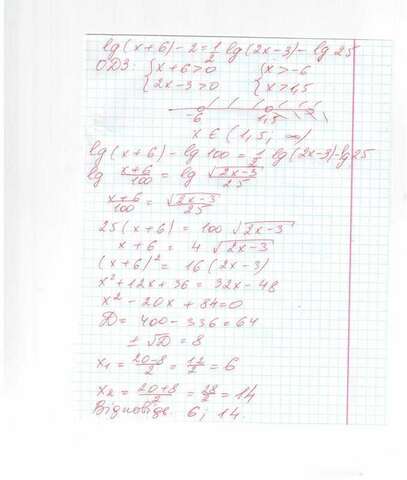 lg(x+6) - 2 = 1/2 lg(2x-3) - lg 25
ОДЗ: { x+6>0 { x>-6
{ 2x-3>0 { x>1,5
-6 1,5
x ∈ (1,5; ∞)
lg(x+6) - lg 100 = 1/2 lg(2x-3) - lg 25
lg (x+6)/100 = lg √(2x-3)/25
(x+6)/100 = √(2x-3)/25
25(x+6) = 100 √(2x-3)
x+6 = 4 √(2x-3)
(x+6)² = 16(2x-3)
x²+12x+36 = 32x-48
x²-20x+84=0
D = 400-336=64
±√D = 8
x₁ = (20-8)/2 = 12/2 = 6
x₂ = (20+8)/2 = 28/2 = 14
Відповідь: 6; 14.